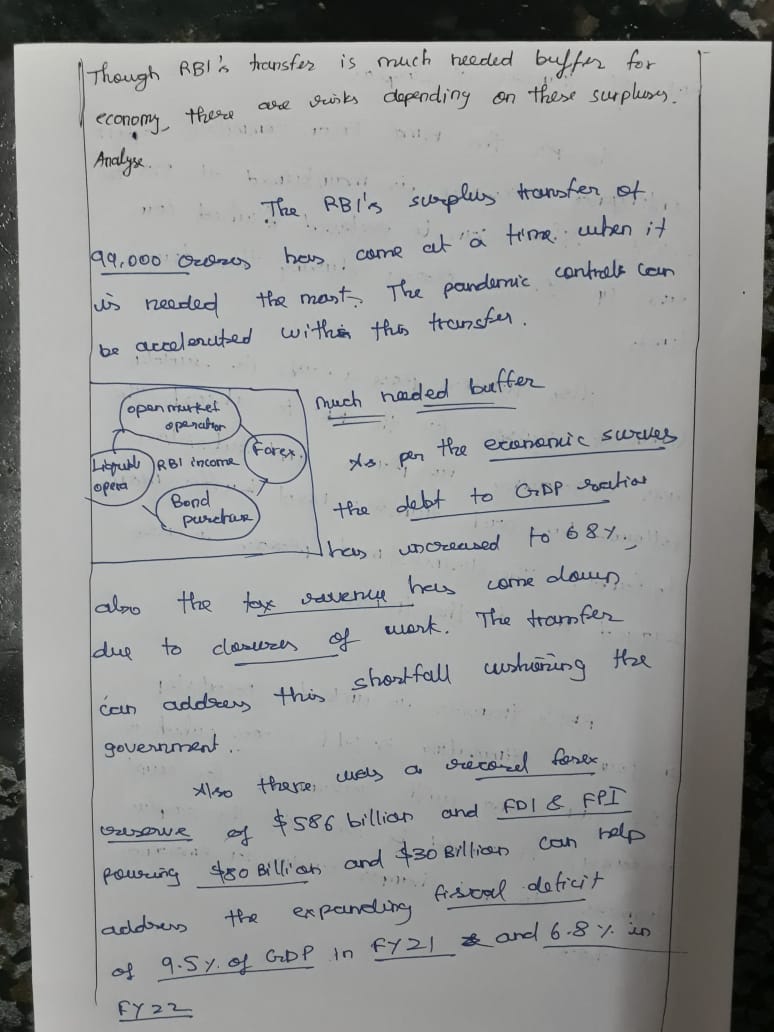 Though RBI's transfer is much needed buffer for
economy, there are risks depending on these surpluses.
Analyse.
The RBI's surplus transfer of
99,000 crores has come at a time when it
is needed the most. The pandemic controls can
be accelerated within this transfer.
open market
operation
Liquid
opera
RBI income
Forex
Bond
purchase
much needed buffer
As per the economic survey
the debt to GDP ratio
has increased to 68%,
also the tax revenue has come down
due to closures of work. The transfer
can address this shortfall cushioning the
government.
Also there was a record forex
reserve of $586 billion and FDI & FPI
pouring $80 Billion and $30 Billion can help
address the expanding fiscal deficit
of 9.5% of GDP in FY21 and 6.8% in
FY22